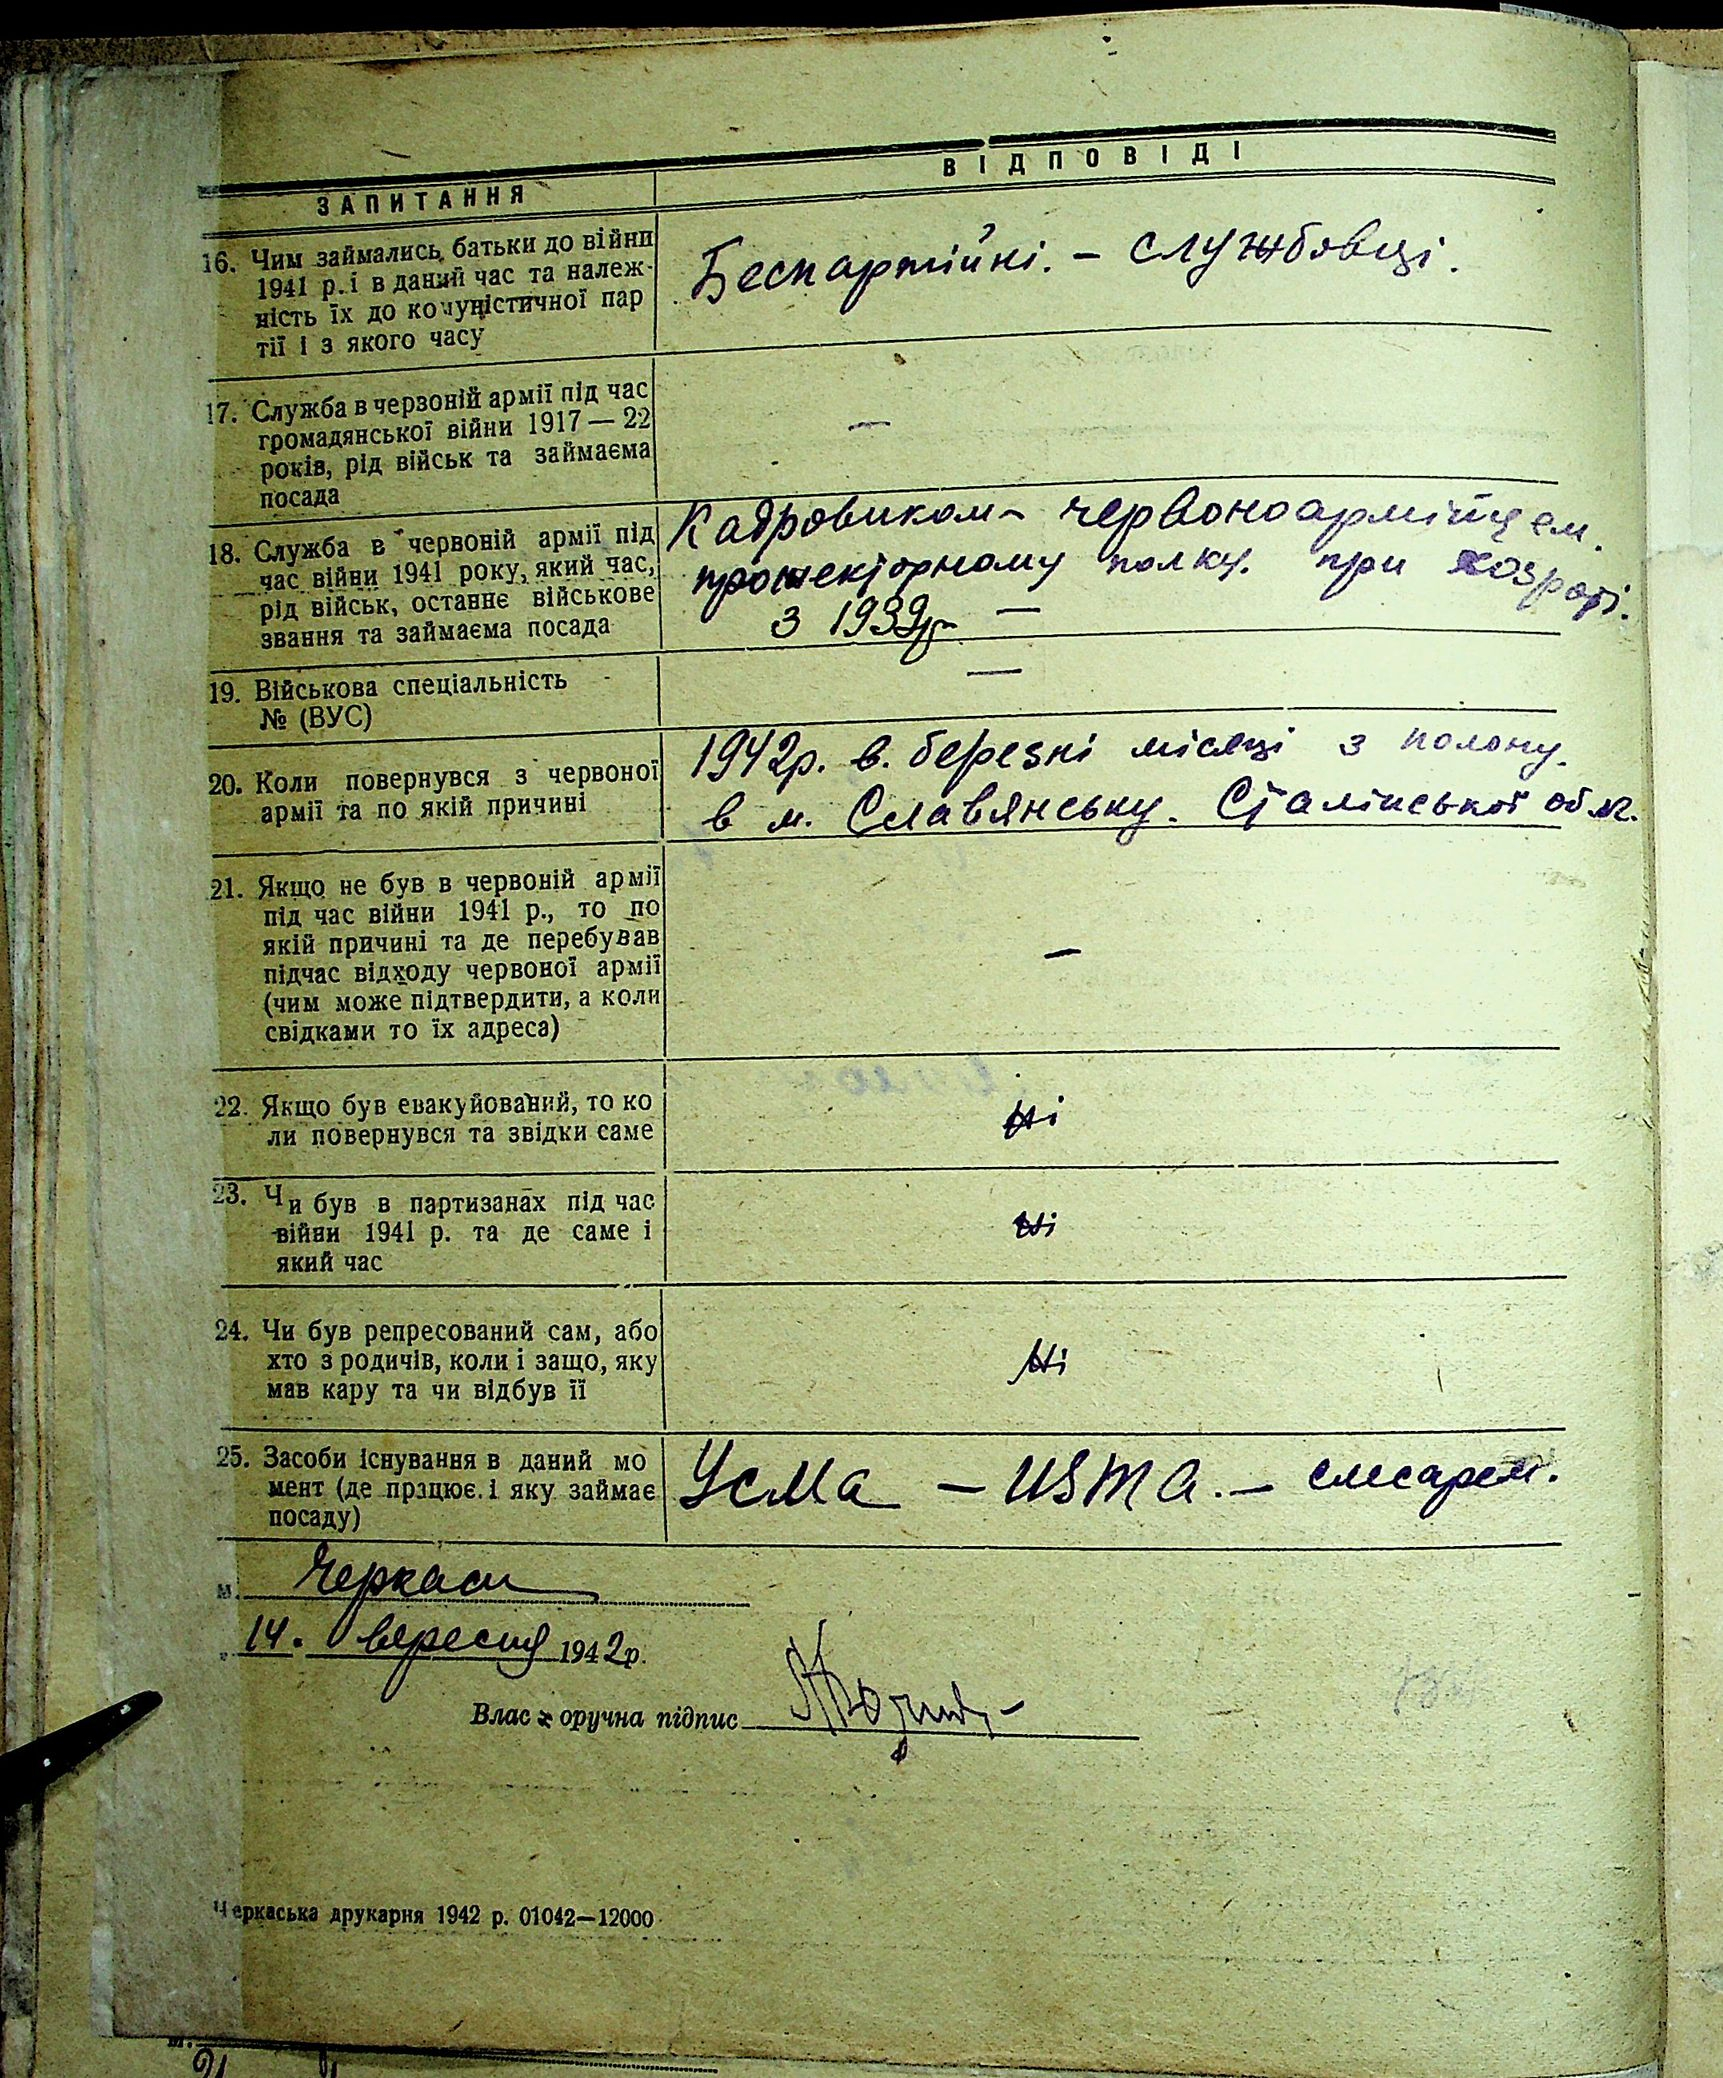 ЗАПИТАННЯ
ВІДПОВІДІ
16. Чим займались батьки до війни
1941 р. і в даний час та належ-
ність їх до комуністичної пар
тії і з якого часу
Беспартійні. – службовці.
17. Служба в черзоній армії під час
громадянської війни 1917 — 22
років, рід військ та займаєма
посада
—
18. Служба в червоній армії під
час війни 1941 року, який час,
рід військ, останнє військове
звання та займаєма посада
Кадровиком – червоноармійцем.
прожекторному полку. при хозроті.
з 1939р —
19. Військова спеціальність
№ (ВУС)
—
20. Коли повернувся з червоної
армії та по якій причині
1942р. в. березні місяці з полону.
в м. Славянську. Сталінської обл.
21. Якщо не був в червоній армії
під час війни 1941 р., то по
якій причині та де перебував
підчас відходу червоної армії
(чим може підтвердити, а коли
свідками то їх адреса)
—
22. Якщо був евакуйований, то ко
ли повернувся та звідки саме
Ні
23. Чи був в партизанах під час
війни 1941 р. та де саме і
який час
Ні
24. Чи був репресований сам, або
хто з родичів, коли і защо, яку
мав кару та чи відбув її
Ні
25. Засоби існування в даний мо
мент (де працює і яку займає
посаду)
Усма – USMA. – слесарем.
м. Черкаси
14. вересня 1942р.
Власоручна підпис
Черкаська друкарня 1942 р. 01042—12000
м.